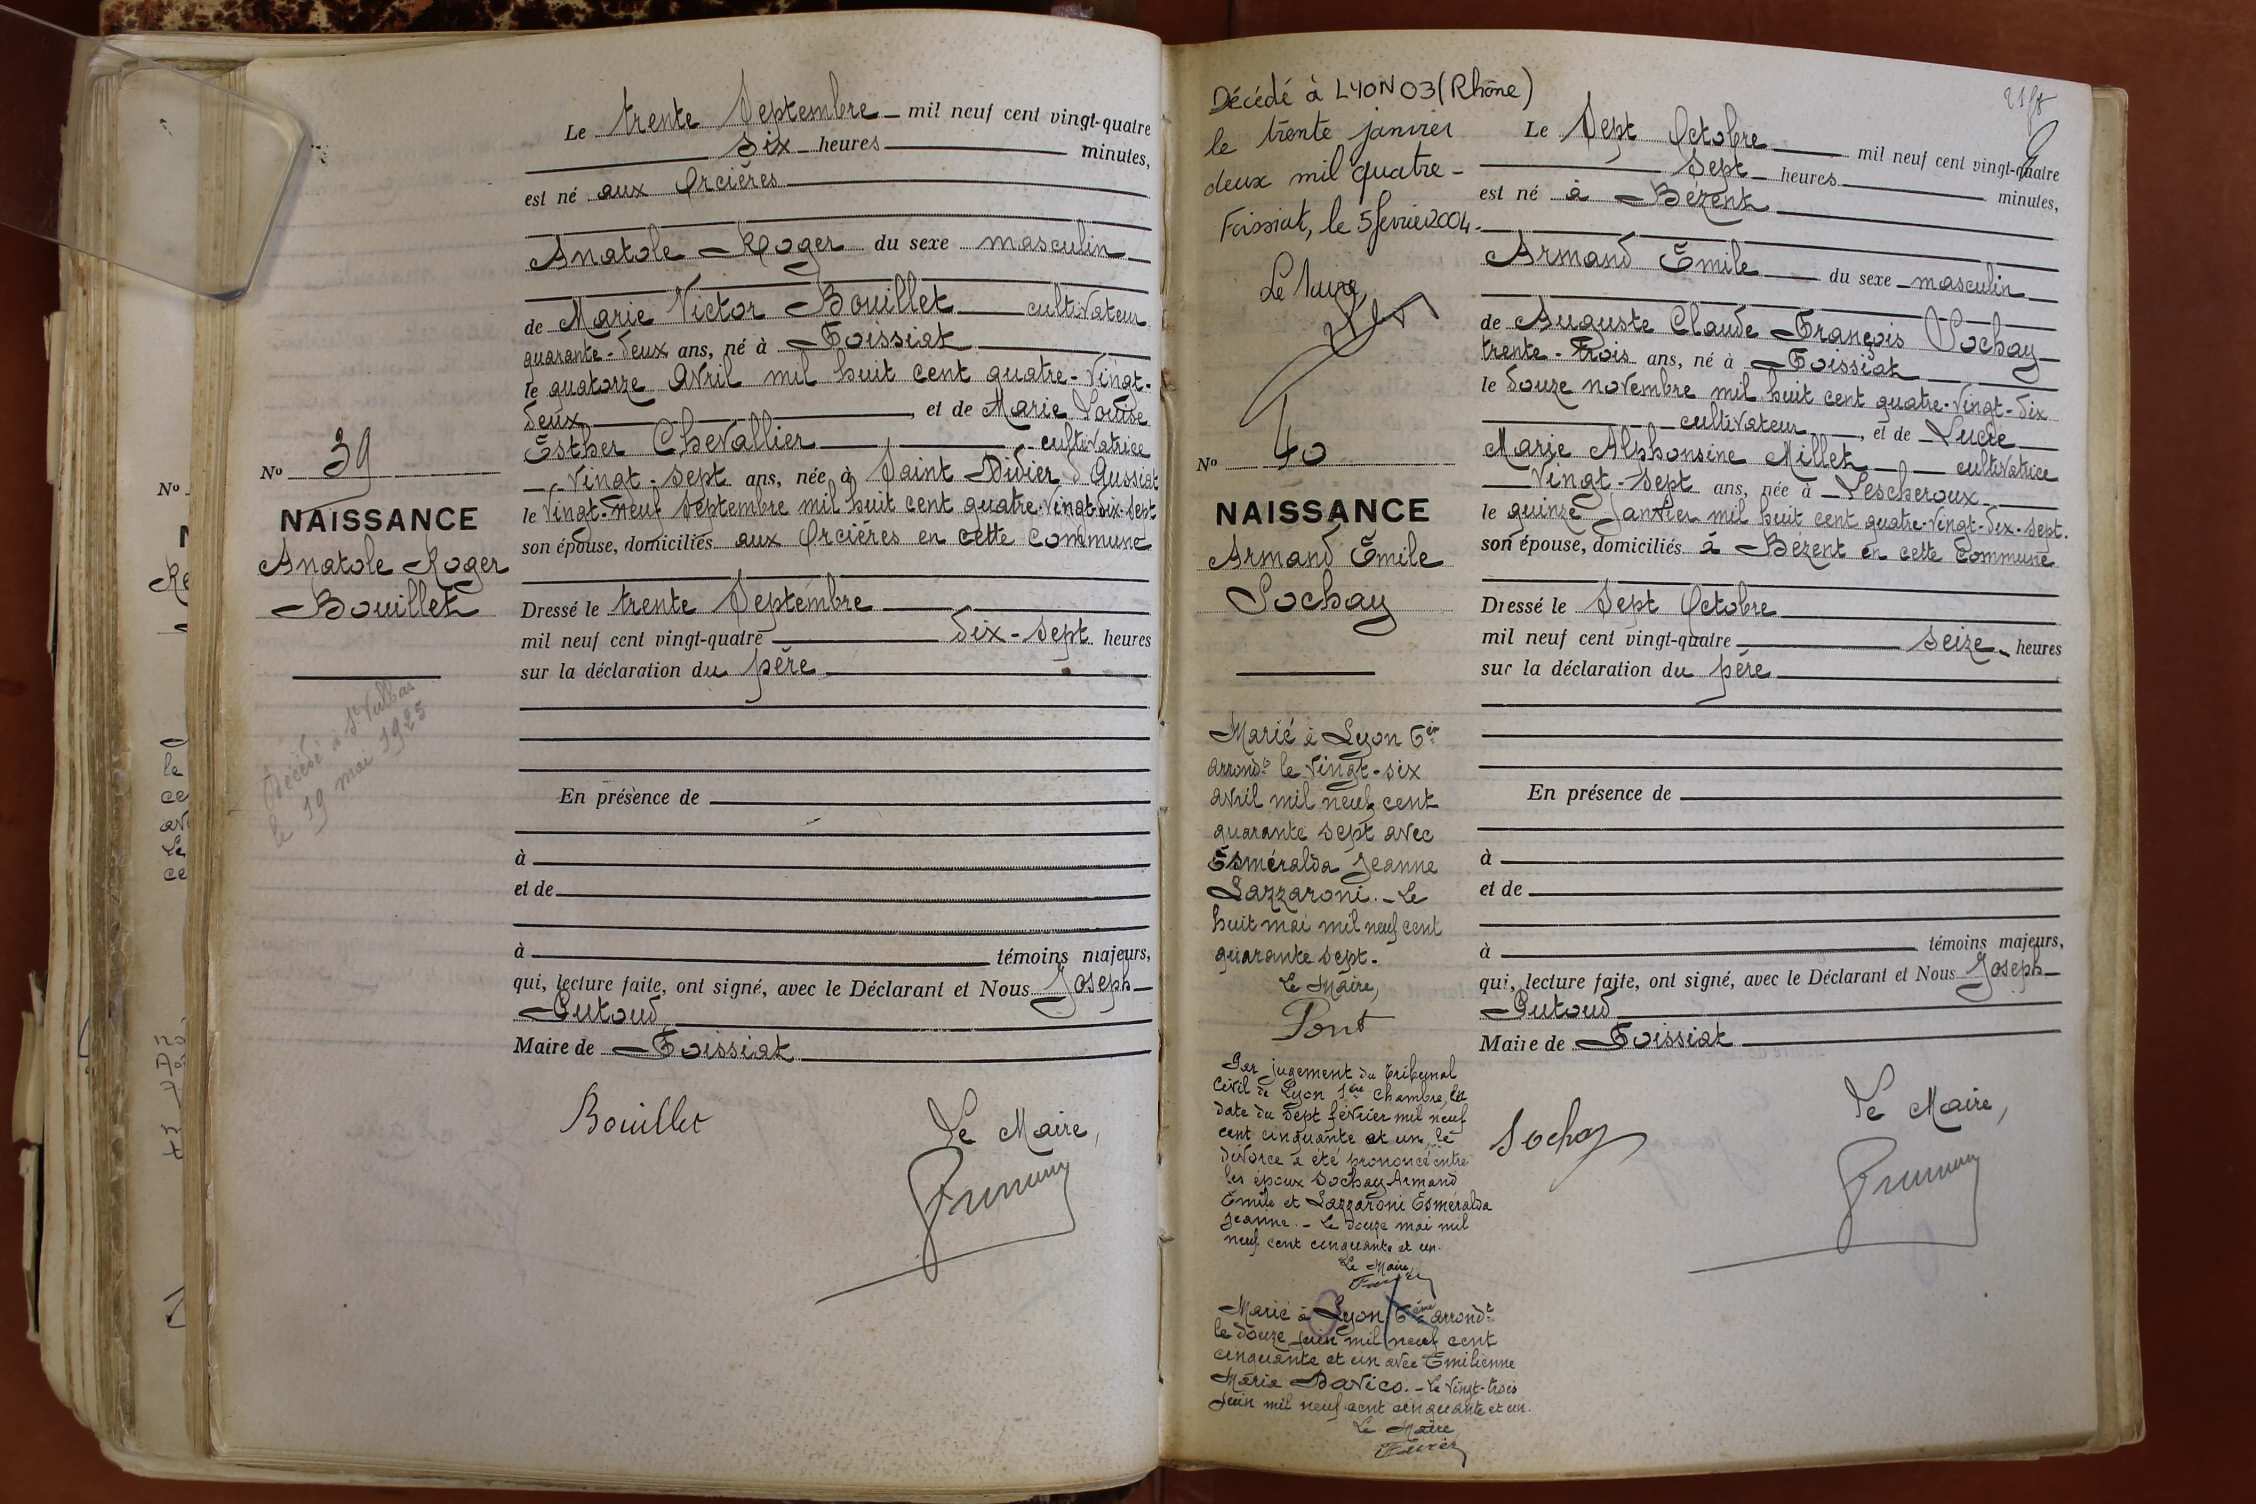 Le trente Septembre mil neuf cent vingt-quatre
six heures minutes,
est né aux Orcières
Anatole Roger du sexe masculin
de Marie Victor Bouillet cultivateur
quarante-deux ans, né à Foissiat
le quatorze Avril mil huit cent quatre-vingt-
deux, et de Marie Louise
Esther Chevallier cultivatrice
vingt-sept ans, née à Saint Didier d'Aussiat
le vingt-neuf septembre mil huit cent quatre-vingt-dix-sept
son épouse, domiciliés aux Orcières en cette Commune
Nº 39
NAISSANCE
Anatole Roger
Bouillet
Décédé à St Vulbas
le 19 mai 1925
Dressé le trente Septembre
mil neuf cent vingt-quatre dix-sept heures
sur la déclaration du père
En présence de
à
et de
à témoins majeurs,
qui, lecture faite, ont signé, avec le Déclarant et Nous Joseph
Putoud
Maire de Foissiat
Bouillet
Le Maire,
Nº
Décédé à LYON 03 (Rhône)
le trente janvier
deux mil quatre -
Foissiat, le 5 février 2004.
Le Maire
Nº 40
NAISSANCE
Armand Emile
Sochay
Marié à Lyon 6e
arrondt le vingt-six
avril mil neuf cent
quarante sept avec
Esméralda Jeanne
Lazzaroni. - Le
huit mai mil neuf cent
quarante sept.
Le Maire,
Pont
Par jugement du Tribunal
Civil de Lyon 1ère Chambre, en
date du sept février mil neuf
cent cinquante et un, le
divorce a été prononcé entre
les époux Sochay Armand
Emile et Lazzaroni Esméralda
Jeanne. - Le douze mai mil
neuf cent cinquante et un.
Le Maire
Marié à Lyon 6ème arrondt
le douze juin mil neuf cent
cinquante et un avec Emilienne
Maria Davico. - Le vingt-trois
juin mil neuf cent cinquante et un.
Le Maire
Le Sept Octobre mil neuf cent vingt-quatre
sept heures minutes,
est né à Bézent
Armand Emile du sexe masculin
de Auguste Claude François Sochay
trente-trois ans, né à Foissiat
le douze novembre mil huit cent quatre-vingt-dix
cultivateur, et de Lucie
Marie Alphonsine Millet cultivatrice
vingt-sept ans, née à Lescheroux
le quinze Janvier mil huit cent quatre-vingt-dix-sept.
son épouse, domiciliés à Bézent en cette Commune
Dressé le Sept Octobre
mil neuf cent vingt-quatre seize heures
sur la déclaration du père
En présence de
à
et de
à témoins majeurs,
qui, lecture faite, ont signé, avec le Déclarant et Nous Joseph
Putoud
Maire de Foissiat
Sochay
Le Maire,